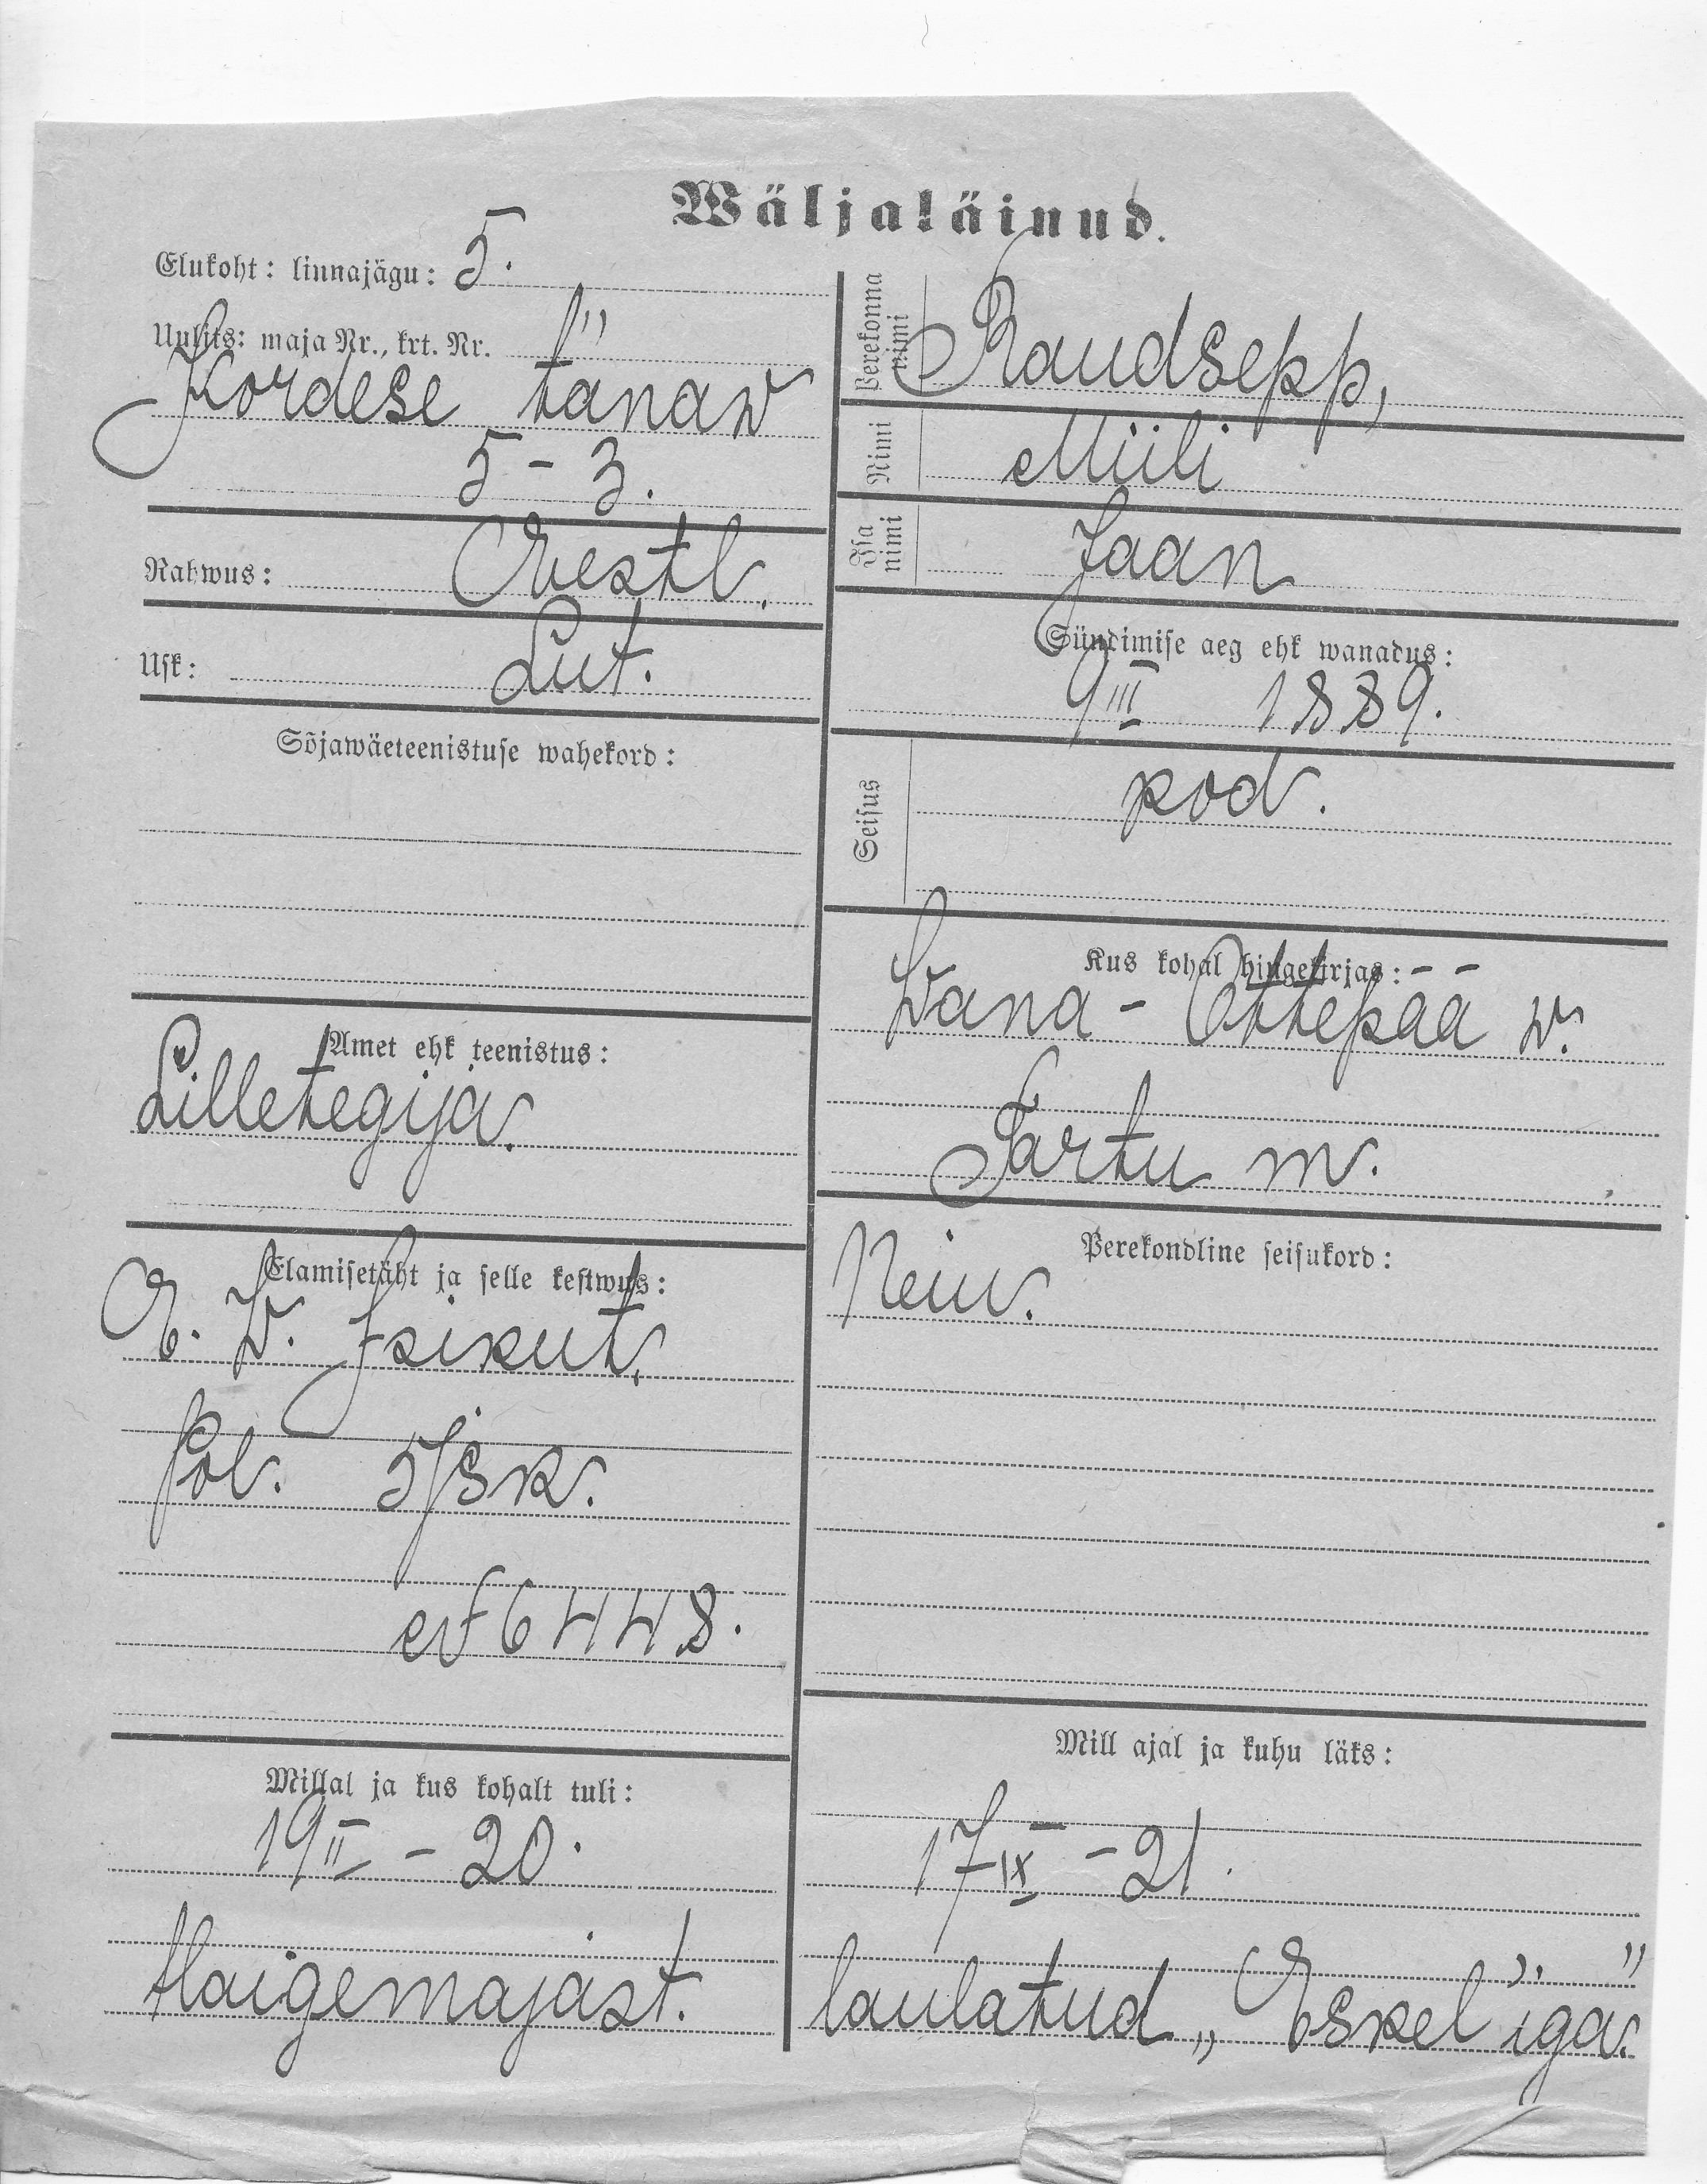 Wäljaläinud.
Elukoht: linnajägu: 5.
Uulits: maja Nr., krt. Nr.
Kordese tänaw
5 - 3.
Rahwus: Eestl.
Usk: Lut.
Sõjawäeteenistuse wahekord:
Amet ehk teenistus:
Lilletegija.
Elamisetäht ja selle kestwus:
E. W. Isikut.
Pol. 5/jsk.
№ 6448.
Millal ja kus kohalt tuli:
19 II - 20.
Haigemajast.
Perekonna nimi
Raudsepp,
Nimi
Miili
Isa nimi
Jaan
Sündimise aeg ehk wanadus:
9 III 1889.
Seisus
pod.
Kus kohal hingekirjas:
Wana - Ottepää w.
Tartu m.
Perekondline seisukord:
Neiu.
Mill ajal ja kuhu läks:
17 IX - 21.
laulatud „Eskel"iga.